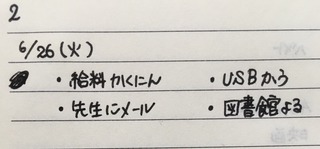 2
6/26(火)
・給料かくにん ・USBかう
・先生にメール ・図書館よる